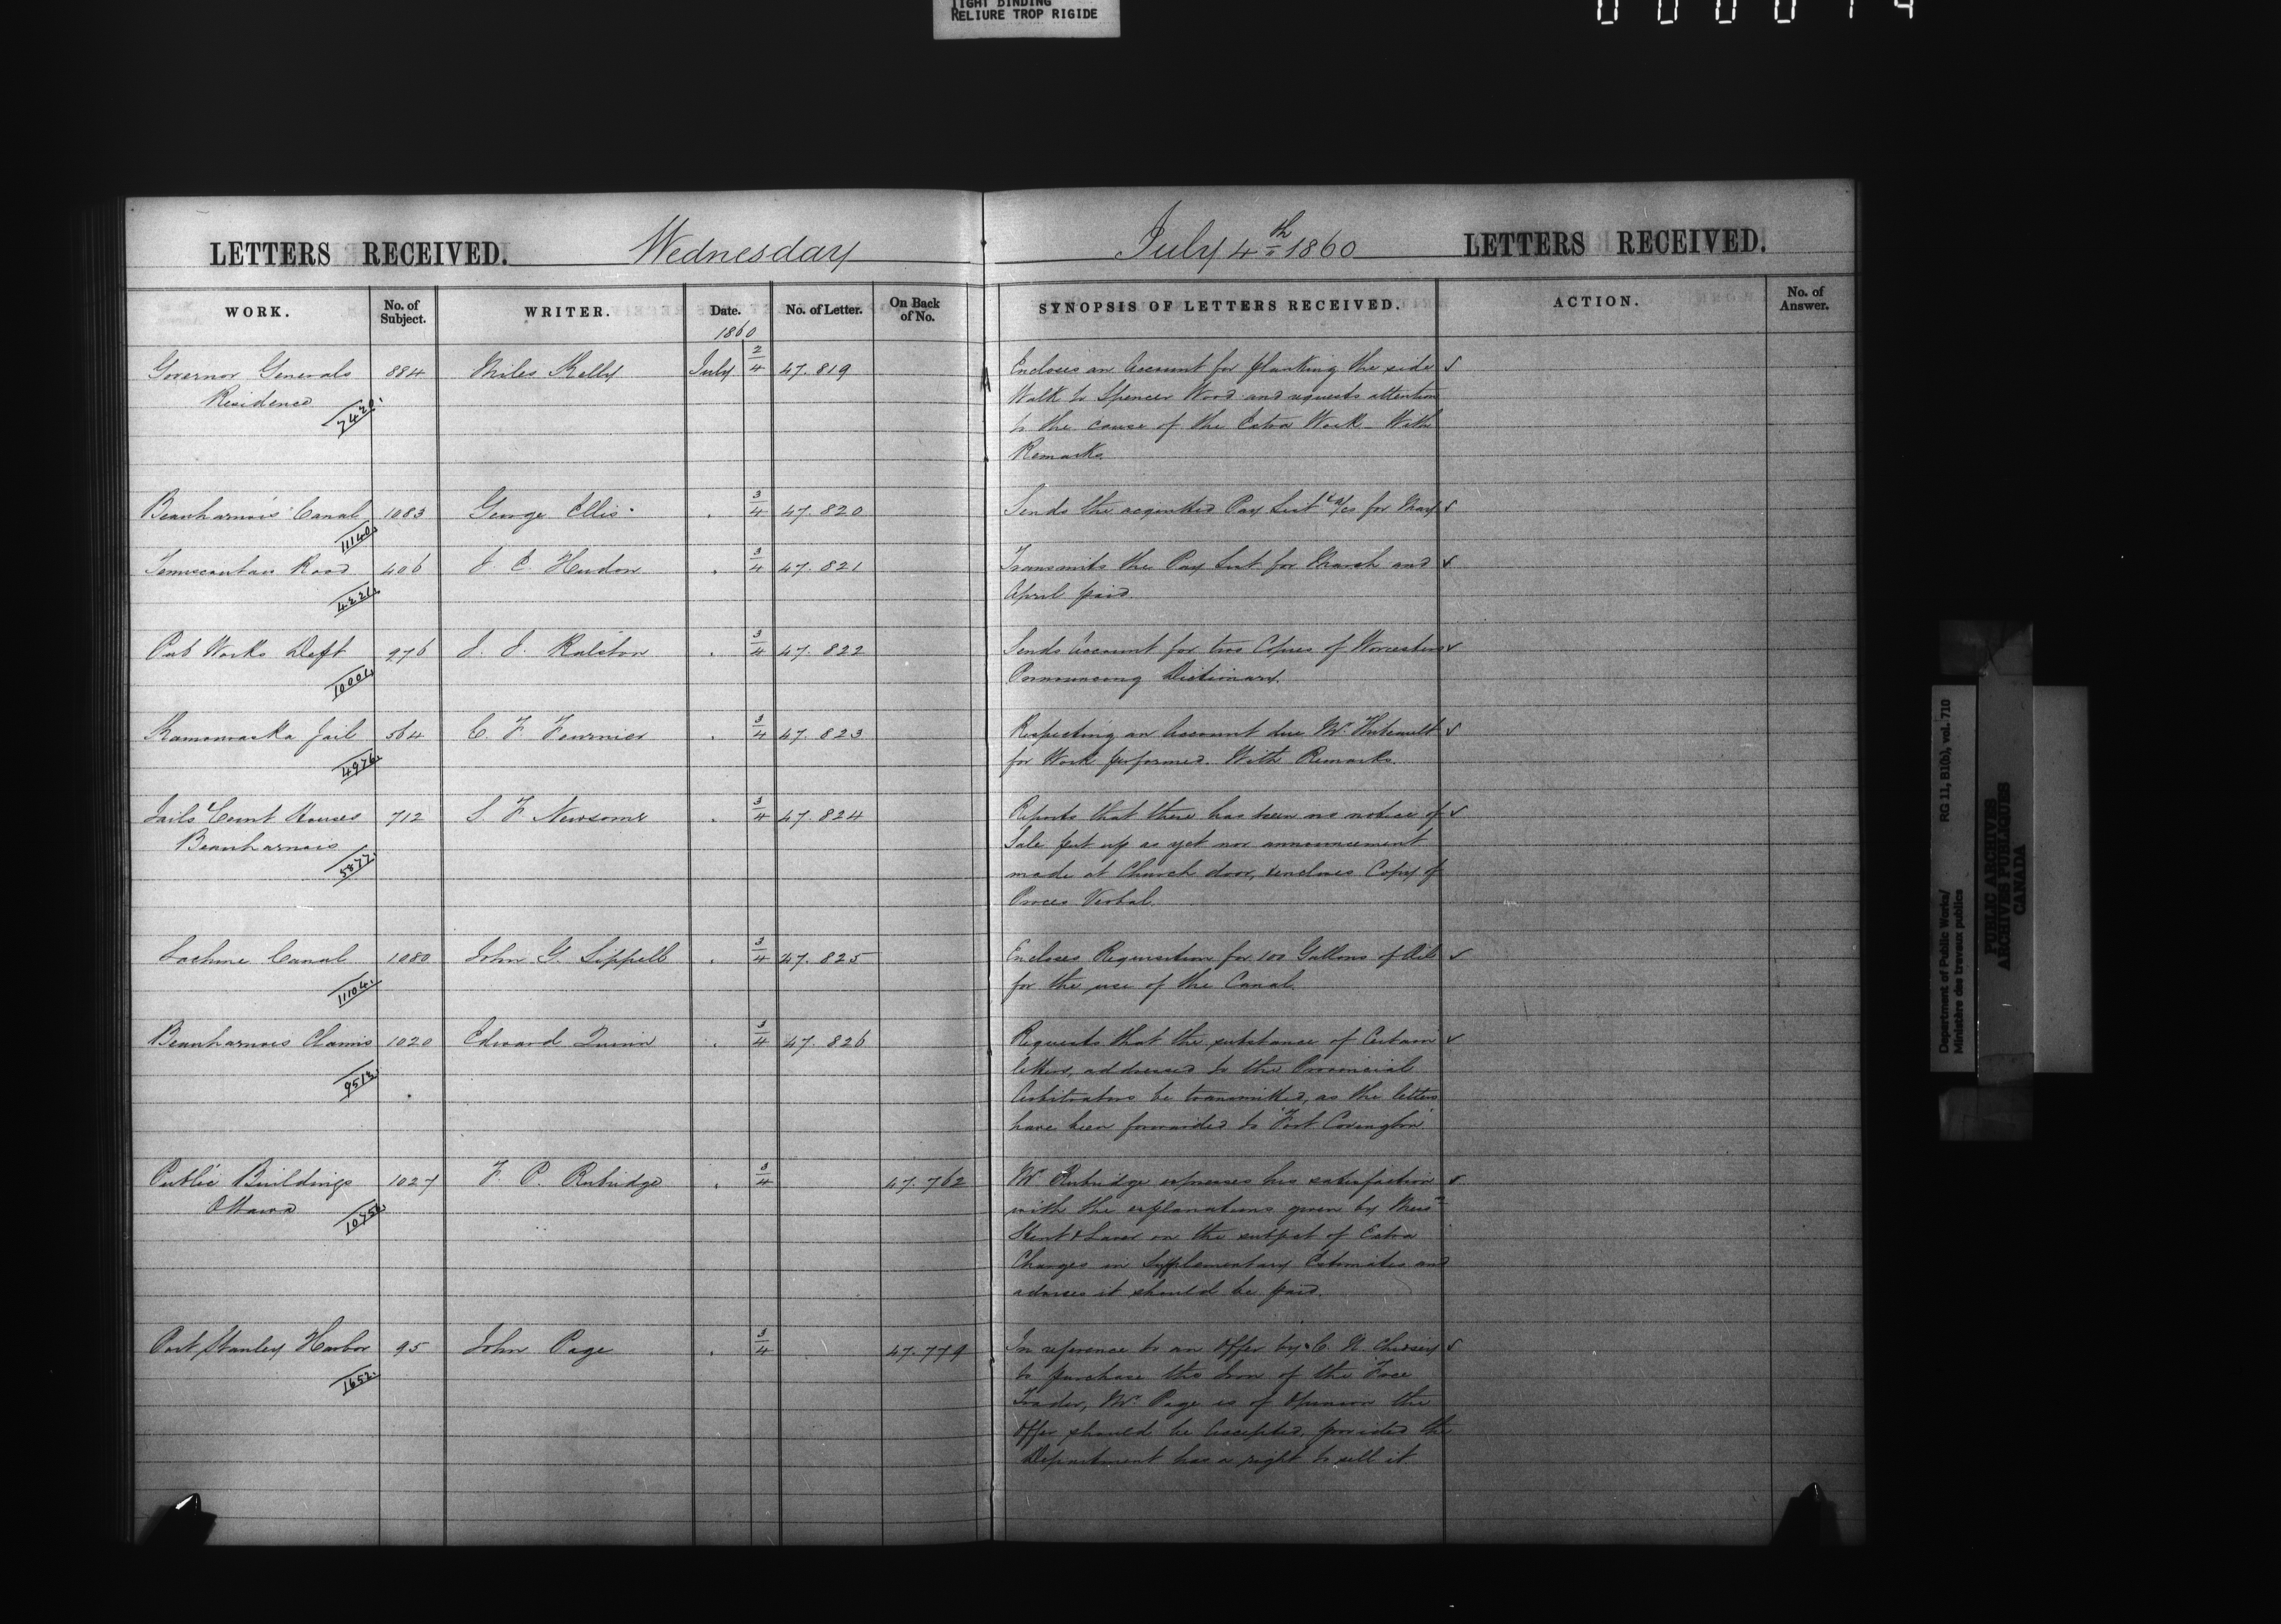 TIGHT BINDING
RELIURE TROP RIGIDE
LETTERS RECEIVED. Wednesday July 4th 1860 LETTERS RECEIVED.
WORK. No. of Subject. WRITER. Date. No. of Letter. On Back of No. SYNOPSIS OF LETTERS RECEIVED. ACTION. No. of Answer.
1860
Governor Generals 884 Miles Kelly July 2/4 47.819 Encloses an Account for planking the side
Residence Walk to Spencer Wood and requests attention
7420. to the cause of the Extra Work With
Remarks.
Beauharnois Canal 1083 George Ellis 3/4 47.820 Sends the acquitted Pay List & a/cs for May
11140.
Temiscoutais Road 406 J. C. Hudon 3/4 47.821 Transmits the Pay List for March and
4221. April paid
Pub Works Dept 976 J. J. Ralston 3/4 47.822 Sends Account for two Copies of Worcesters
10001. Pronouncing Dictionary.
Kamouraska Jail 564 C. F. Fournier 3/4 47.823 Respecting an Account due Mr
4976. for Work performed. With Remarks.
Jails & Court Houses 712 S. F. Newsome 3/4 47.824 Reports that there has been no notice of
Beauharnois Sale put up as yet nor announcement
5877. made at Church door, & encloses Copy of
Proces Verbal.
Lachine Canal 1080 John G. Sippell 3/4 47.825 Encloses Requisition for 100 Gallons of Oil
11104. for the use of the Canal.
Beauharnois Claims 1020 Edward Quinn 3/4 47.826 Requests that the substance of Certain
9513. letters, addressed to the Provincial
Arbitrators be transmitted, as the letters
have been forwarded to "Fort Covington"
Public Buildings 1027 F. P. Rubidge 3/4 47.762 Mr Rubidge expresses his satisfaction
Ottawa with the explanations given by Messrs
10756. Stent & Laver on the subject of Extra
Charges in Supplementary Estimates and
advises it should be paid.
Port Stanley Harbor 95 John Page 3/4 47.779 In reference to an Offer by C. N.
1652. to purchase the Iron of the Free
Trader, Mr Page is of Opinion the
Offer should be Accepted, provided the
Department has a right to sell it.
Department of Public Works/ RG 11, B1(b), vol. 710
Ministère des travaux publics
PUBLIC ARCHIVES
ARCHIVES PUBLIQUES
CANADA